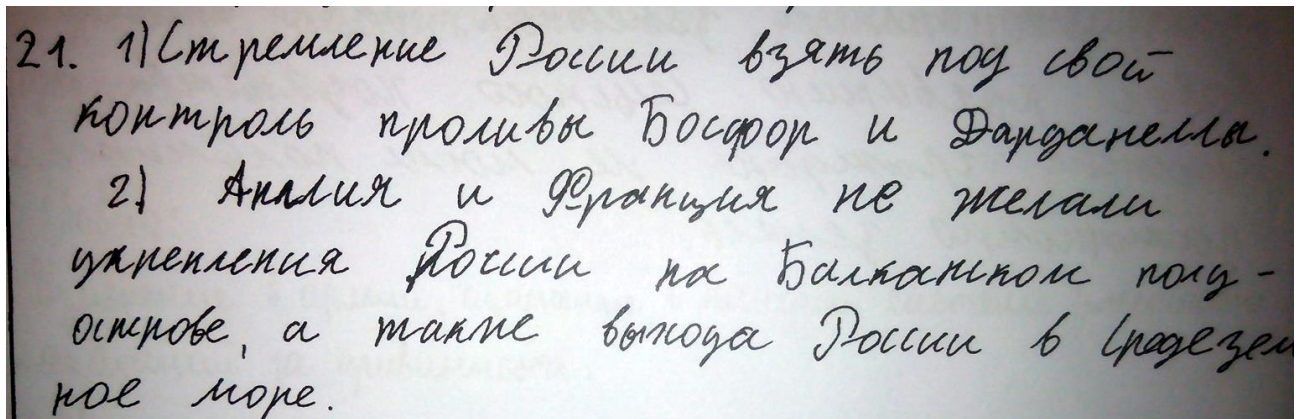 21. 1) Стремление России взять под свой
контроль проливы Босфор и Дарданеллы.
2) Англия и Франция не желали
укрепления России на Балканском полу-
острове, а также выхода России в Средезем
ное море.